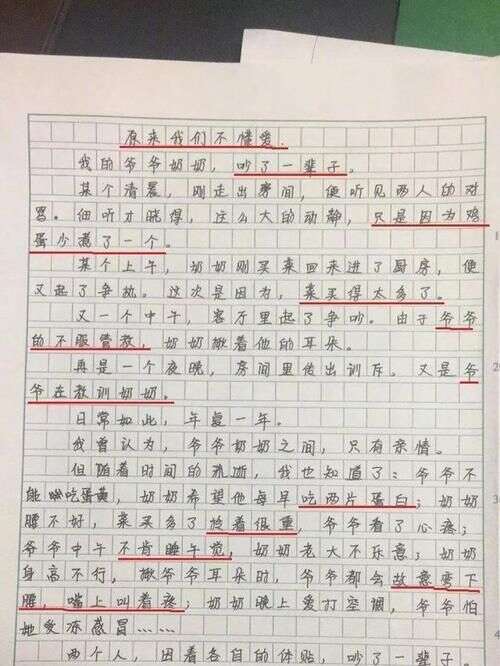 原来我们不懂爱.
我的爷爷奶奶，吵了一辈子。
某个清晨，刚走出房间，便听见两人的对
骂。细听才晓得，这么大的动静，只是因为鸡
蛋少煮了一个。
某个上午，奶奶刚买菜回来进了厨房，便
又起了争执。这次是因为，菜买得太多了。
又一个中午，客厅里起了争吵。由于爷爷
的不服管教，奶奶揪着他的耳朵。
再是一个夜晚，房间里传出训斥。又是爷
爷在教训奶奶。
日常如此，年复一年。
我曾认为，爷爷奶奶之间，只有亲情。
但随着时间的流逝，我也知道了：爷爷不
能吃蛋黄，奶奶希望他每早吃两片蛋白；奶奶
腰不好，菜买多了拎着很重，爷爷看了心疼；
爷爷中午不肯睡午觉，奶奶老大不乐意；奶奶
身高不行，揪爷爷耳朵时，爷爷都会故意弯下
腰，嘴上叫着疼；奶奶晚上爱打空调，爷爷怕
她受冻感冒……
两个人，因着各自的体贴，吵了一辈子。